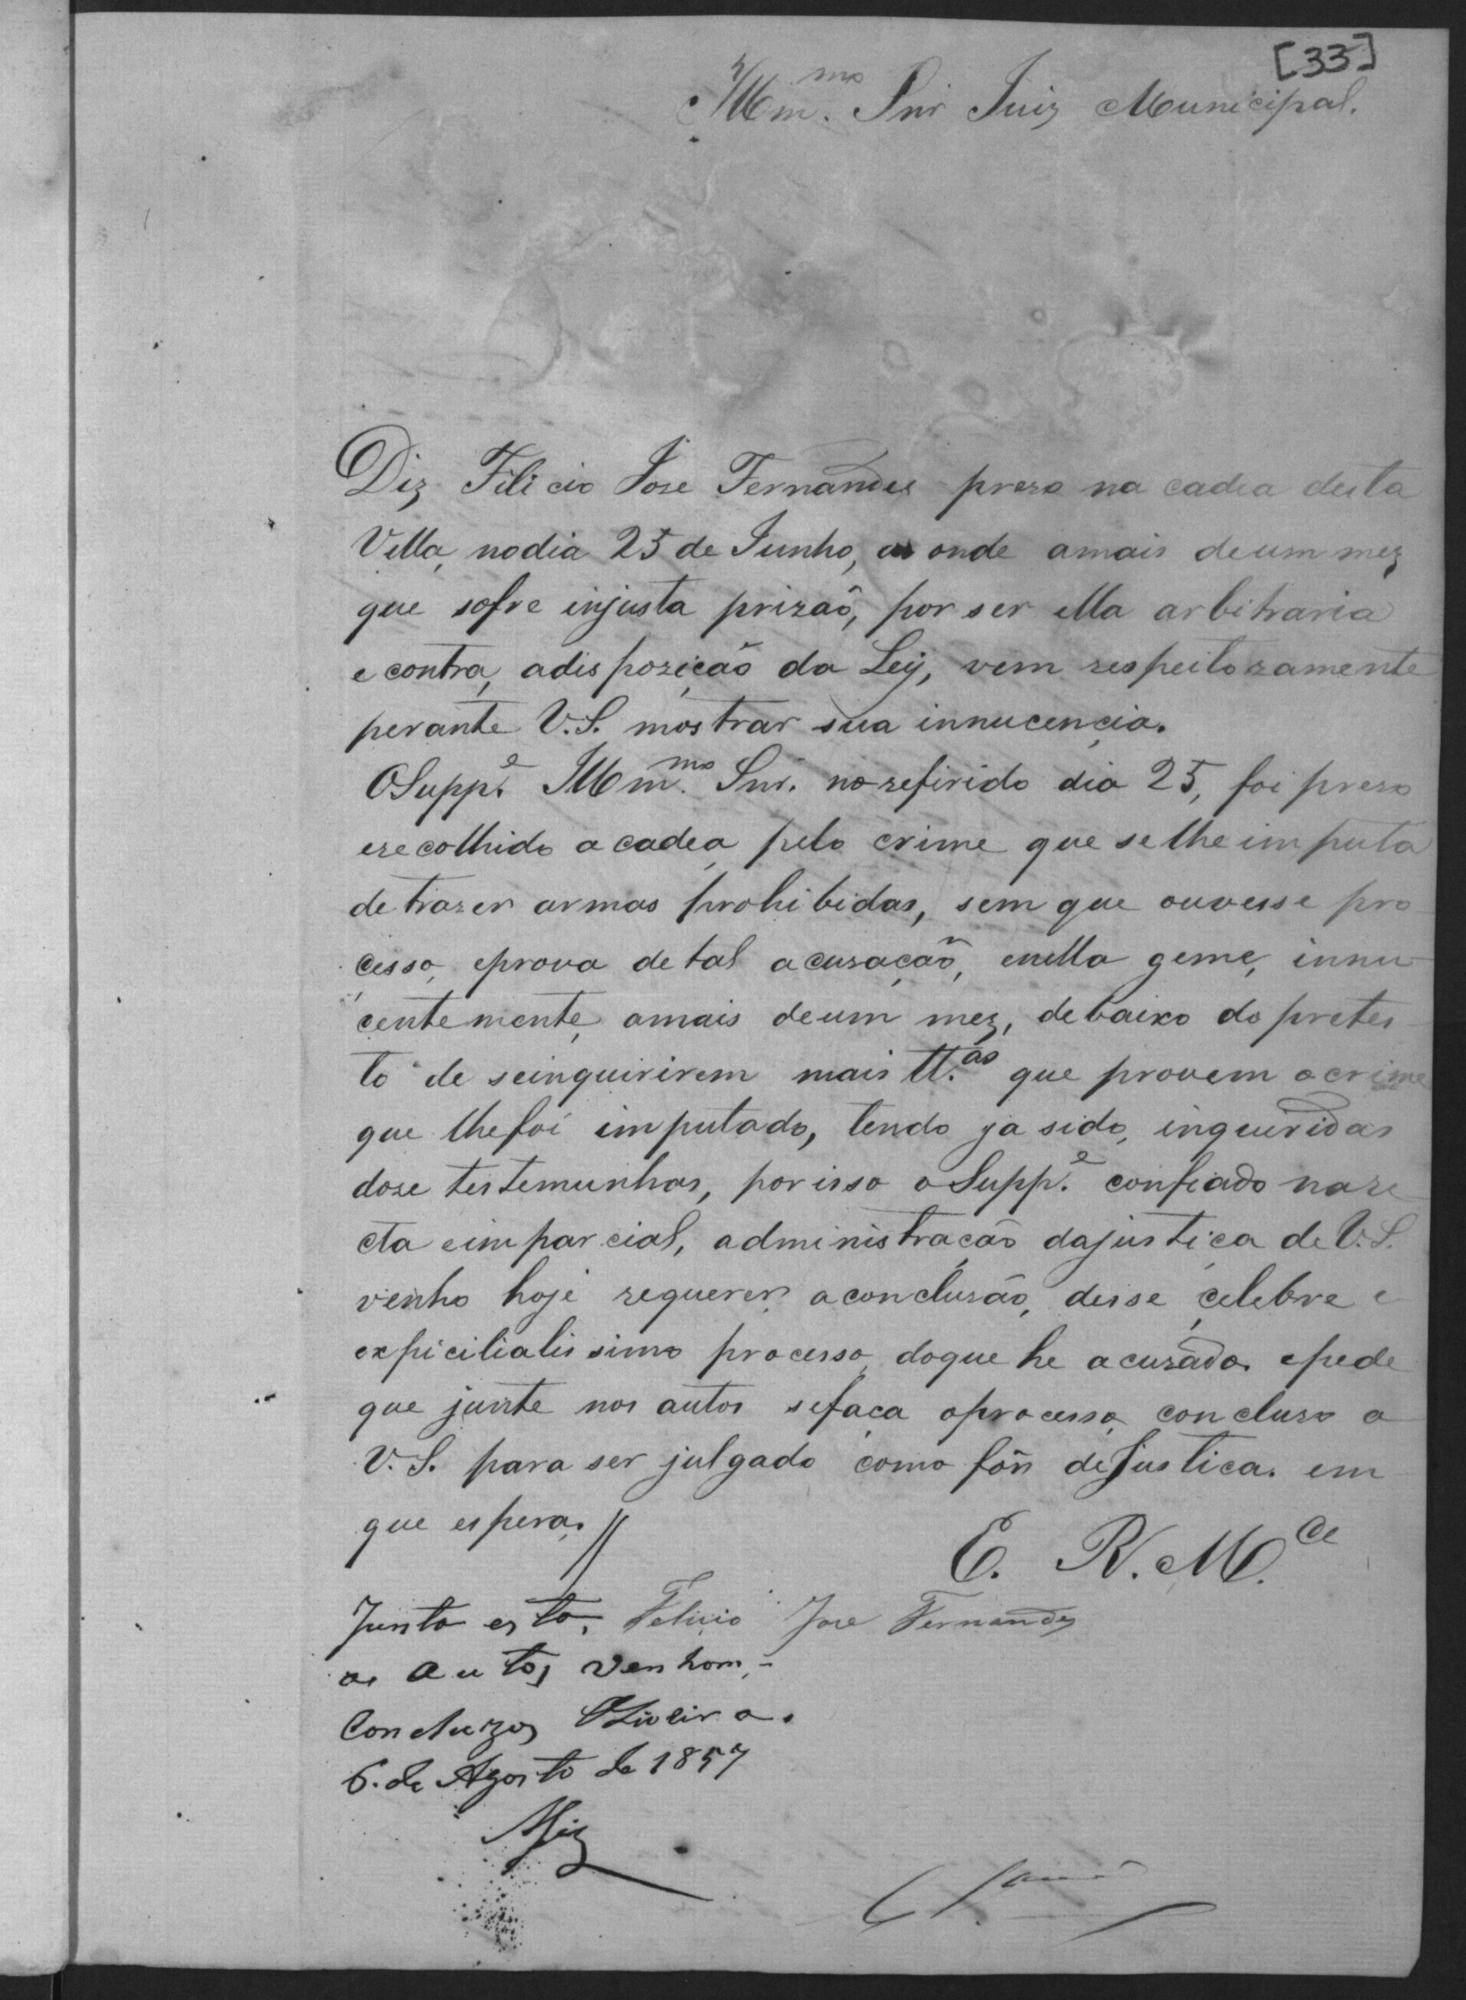 [33]
Illm.mo Snr Juiz Municipal.
Diz Filicio Jose Fernandes prezo na cadea desta
Villa, no dia 25 de Junho, as onde amais deum mez
que sofre injusta prizaõ, por ser ella arbitraria
e contra, adispozicaõ da Ley, vem respeitozamente
perante V.S. mostrar sua innucencia.
OSupp.e Illm.mo Snr. no refirido dia 25, foi prezo
erecolhido a cadea pelo crime que selhe imputa
detrazer armas prohibidas, sem que ouvesse pro
cesso, eprova detal acuzaçaõ, enella geme, innu-
centemente amais deum mez, debaixo do pretes-
to de seinquirirem mais tt.as que provem o crime
que lhefoi imputado, tendo ja sido, inqueridas
doze testemunhas, porisso o Supp.e confiado nare
cta eimparcial, administraçaõ dajustiça de V.S.
venho hoje requerer aconcluzaõ, desse, celebre e
expicilialissimo processo, doque he acuzado. epede
que junte nos autos sefaça oprocesso, concluzo a
V.S. para ser julgado como fôr deJustica. em
que espera. //
E. R. M.ce
Junto esta, Felicio Jose Fernandes
os Autos venham,-
Concluzos Oliveira.
6. de Agosto de 1857